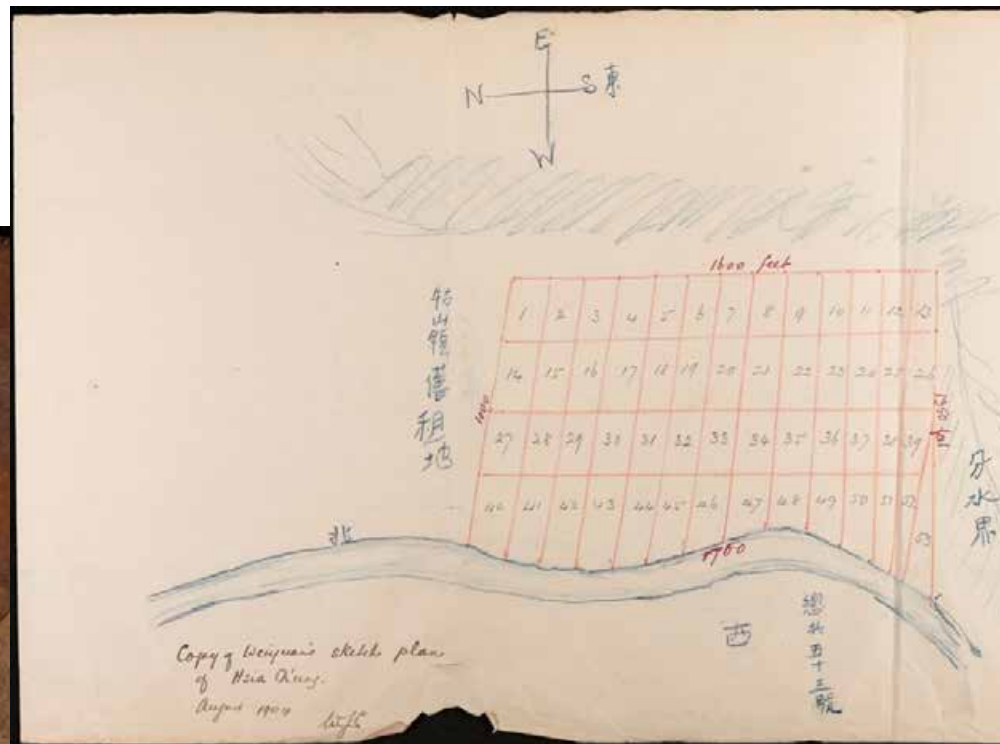 E
N S 東
W
1600 feet
牯山領舊租地
1 2 3 4 5 6 7 8 9 10 11 12 13
14 15 16 17 18 19 20 21 22 23 24 25 26
27 28 29 30 31 32 33 34 35 36 37 38 39
40 41 42 43 44 45 46 47 48 49 50 51 52
53
分水界
北
1700
西
總共五十三號
Copy of sketch plan
of Hsia
August 1904